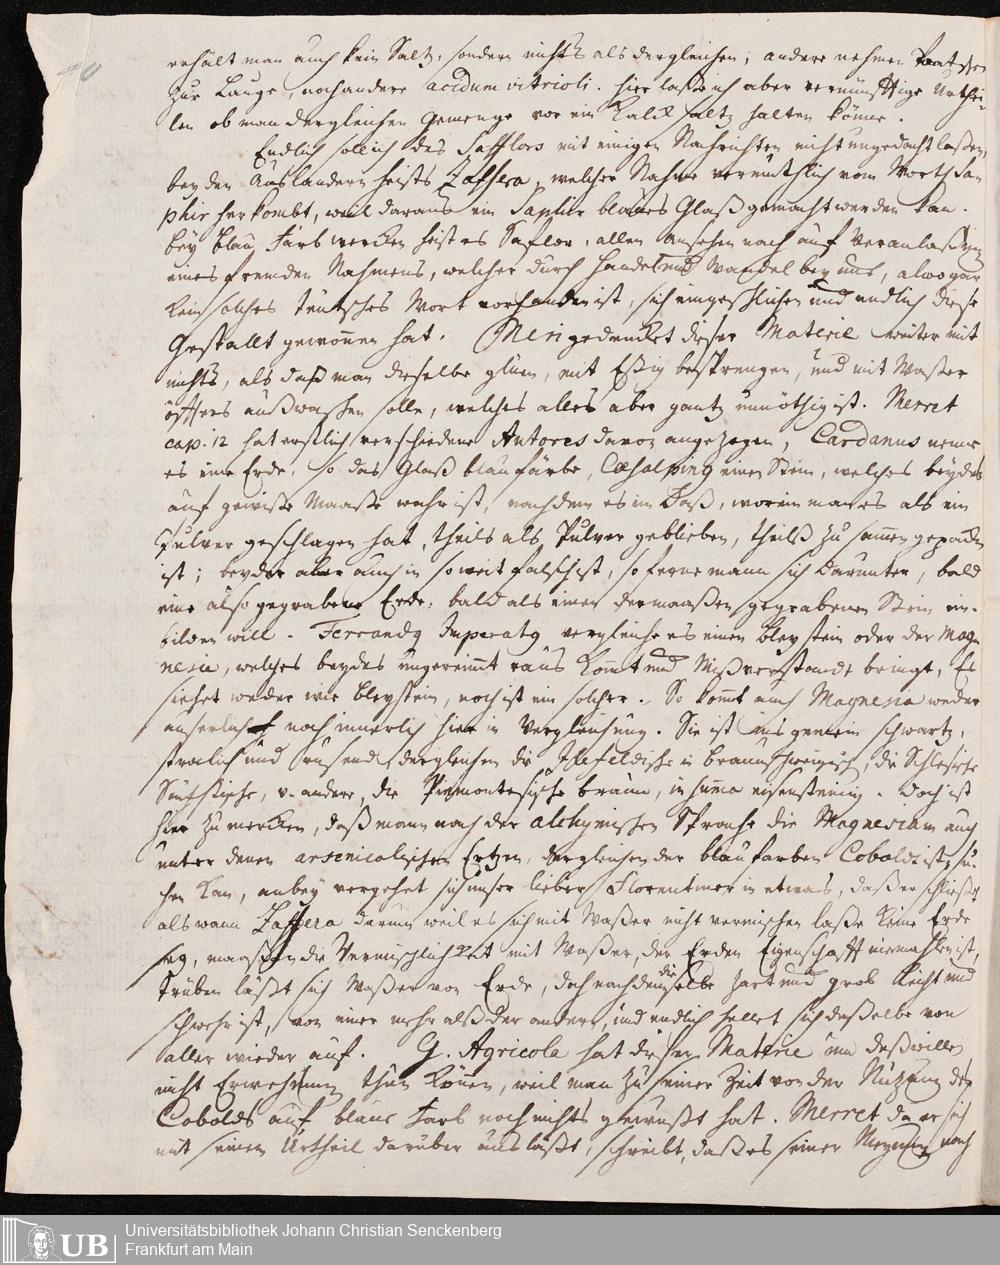 erhält man auch kein Saltz, sondern nichts als dergleichen; andere nehmen
zur Lauge, noch andere acidum vitrioli. hier laße ich aber vernünfftige Urthei-
len ob man dergleichen Gemenge vor ein Kalck saltz halten könne.
Endlich soll ich des Safflors mit einigen Nachrichten nicht ungedacht laßen,
bey den Ausländern heists Zaffera, welcher Nahme vermuthlich vom Worth Sa-
phir herkombt, weil daraus ein Saphir blaues Glaß gemacht werden kan.
bey blau Farb wercken heist es Saflor, allen ansehen nach auf Veranlaßung
eines frembden Nahmens, welcher durch Handel und Wandel bey uns, alwo gar
kein solches teutsches Wort vorhanden ist, sich eingeschlichen und endlich diese
Gestallt gewonnen hat. Neri gedencket dieser Materie weiter mit
nichts, als daß man dieselbe glüen, mit Eßig besprengen, und mit Waßer
öffters außwaschen solle, welches alles aber gantz unnöthig ist. Merret
cap. 12 hat erstlich verschiedene Autores davon angezogen, Cardanus nenne
es eine Erde, so das Glaß blau färbe, Caesalpinus einen Stein, welches beydes
auf gewiße Maaße wahr ist, nachdem es im Faß, worein man es als ein
Pulver geschlagen hat, theils als Pulver geblieben, theilß zusammen gepacken
ist; beydes aber auch in so weit falsch ist, so ferne mann sich darunter, bald
eine also gegrabene Erde, bald als einen dermaaßen gegrabenen Stein ein-
bilden will. Ferrandus Imperatus vergleiche es einen Bleystein oder der Mag-
nesia, welches beydes ungereimt raus kommt und Mißverstandt bringt, Es
siehet weder wie Bleystein, noch ist ein solcher. So kommt auch Magnesia weder
äuserlich noch innerlich hier in Vergleichung. Sie ist ins gemein schwartz,
stralich und dergleichen die Ilefeldische in Braunschweigisch, die Schlesische
v. andere, die Piemontesische braun, in summa eisensteinig. Doch ist
hier zu mercken, daß mann nach der alchymischen Sprache die Magnesiam auch
unter denen arsenicalischen Ertzen, dergleichen der blaufarben Cobold ist, su-
chen kan, anbey vergehet sich unser lieber Florentiner in etwas, daß er schließt
als wann Zaffera darum weil es sich mit Waßer nicht vermischen laße keine Erde
sey, maaßen die Vermischlichkeit mit Waßer, der Erden Eigenschafft niemahlen ist,
Trüben läßt sich Waßer von Erde, doch nachdem dieselbe zart und grob leicht und
schwehr ist, von einer mehr alß der andern, und endlich hellet sich daßelbe von
aller wieder auf. G. Agricola hat dieser Materie um deßwillen
nicht Erwehnung thun können, weil man zu seiner Zeit von der Nutzung des
Cobolds auf blaue Farb noch nichts gewußt hat. Merret da er sich
mit seinen Urtheil darüber ausläßt, schreibt, daß es seiner Meynung nach
UB
Universitätsbibliothek Johann Christian Senckenberg
Frankfurt am Main